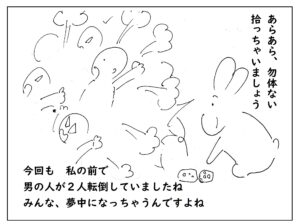 あらあら、勿体ない
拾っちゃいましょう
今回も　私の前で
男の人が２人転倒していましたね
みんな、夢中になっちゃうんですよね